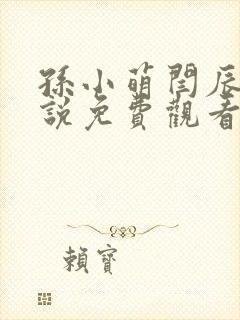 孫小萌閆辰
說免費觀看
賴寶